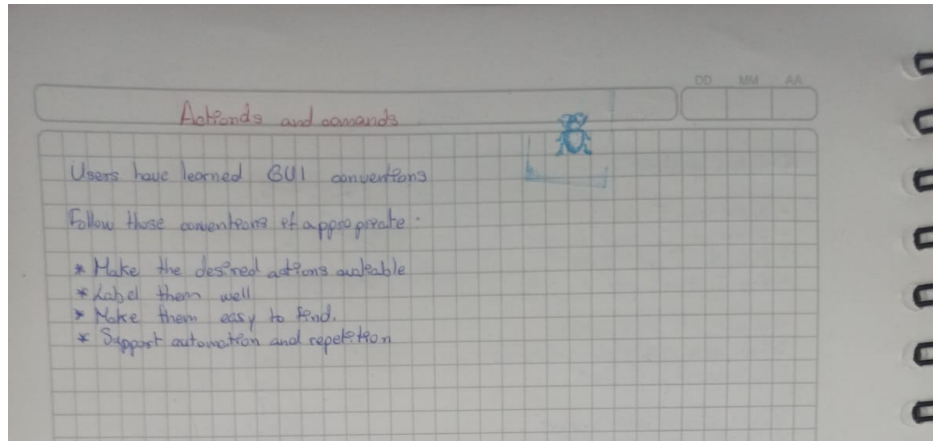 DD MM AA
Actionds and comands
Users have learned GUI conventions
Follow those conventions if appropriate.
* Make the desired actions avaleable
* Label them well
* Make them easy to find.
* Support automation and repetition